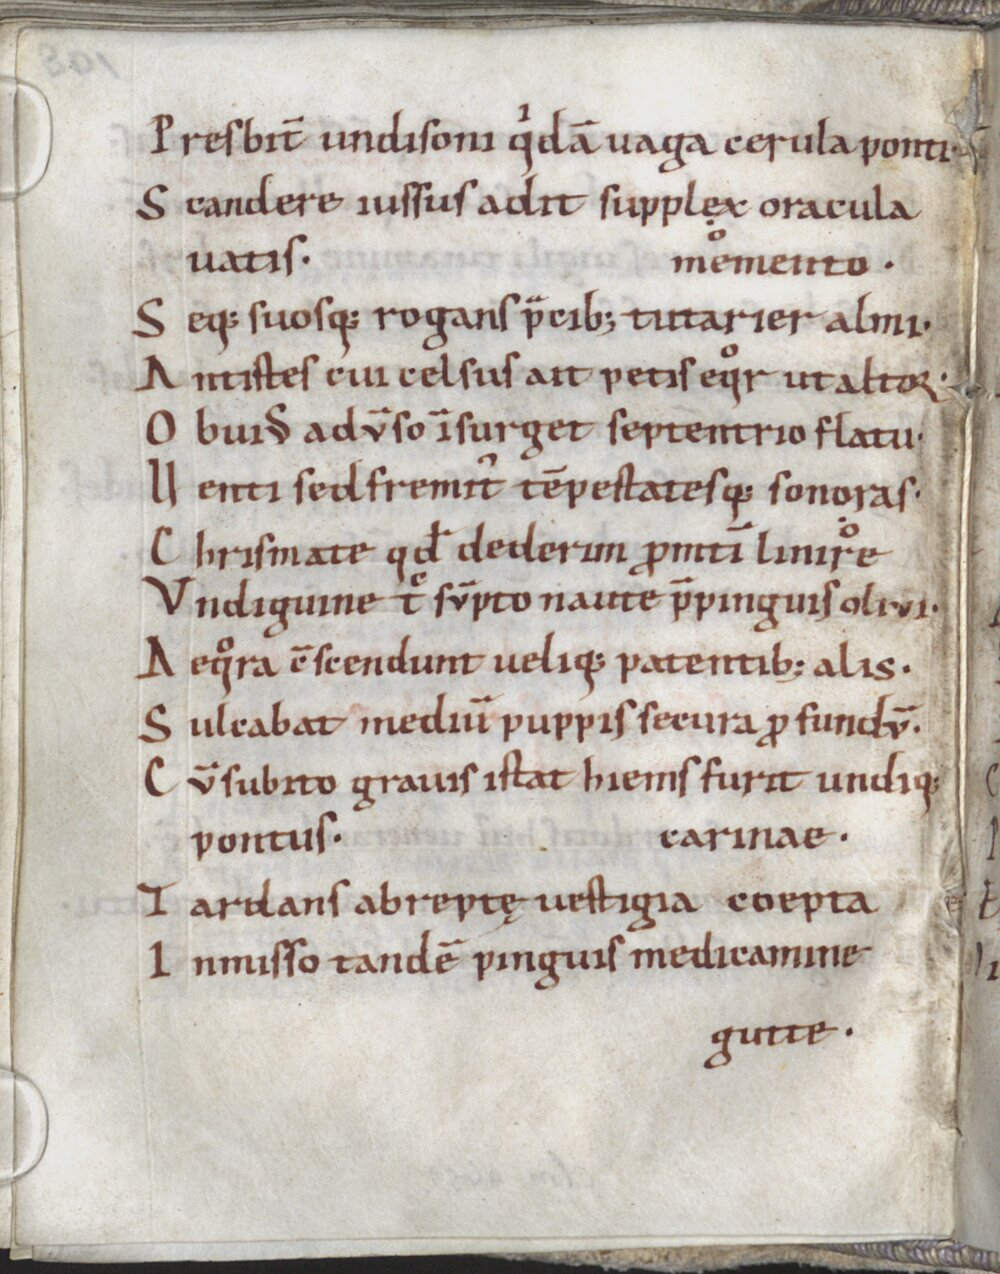 108
Presbit̄ undisoni qͥdā uaga cerula ponti·
Scandere iussus adit supplex oracula
uatis· memento·
Seq; suosq; rogans p̄cib; tutarier almi·
Antistes cui celsus ait petis eqͦr ut altor·
Obuiꝰ adv̄so īsurget septentrio flatu·
Uenti sed fremit᷒ tēpestatesq; sonoras·
Chrismate qd̄ dederim ꝓmtī linire
Vndiguine t̄ sv̄pto naute p̄pinguis olivi·
Aeqͦra ēscendunt ueliq; patentib; alis·
Sulcabat mediū puppis secura ꝓfundv̄·
Cv̄ subito grauis istat hiems furit undiq;
pontus· carinae·
Tardans abreptę uestigia coepta
Inmisso tandē pinguis medicamine
gutte·